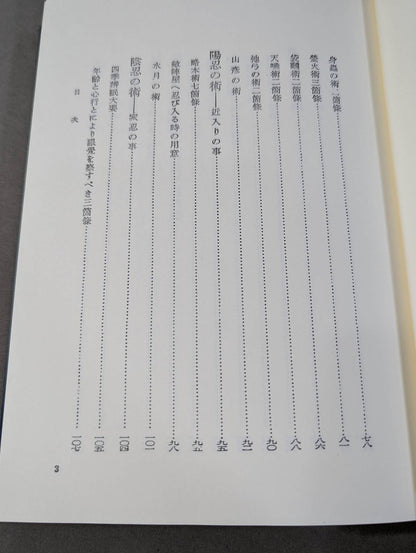 身蟲の術二箇條……七八
螢火術三箇條……八一
袋飜術二箇條……八六
天唾術二箇條……八八
弛弓の術二箇條……九〇
山彥の術……九二
陽忍の術——近入りの事……九五
略本術七箇條……九五
敵陣屋へ忍び入る時の用意……九八
水月の術……一〇一
陰忍の術——家忍の事……一〇四
四季辨眠大要……一〇五
年齡と心行とにより眠覺を察すべき三箇條……一〇七
目次
3